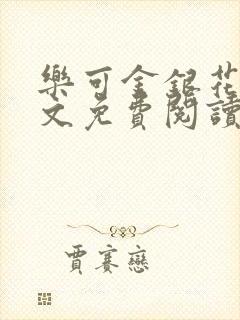 樂可金銀花
文免費閱讀
賈賽戀